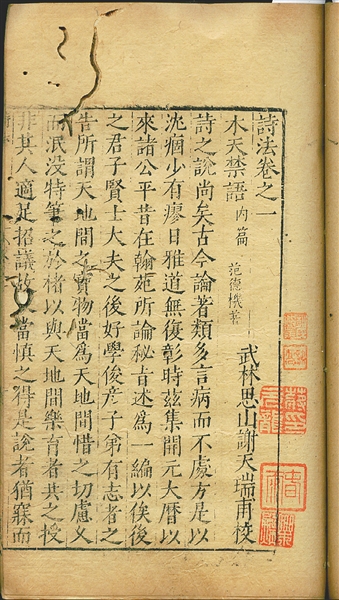 詩法卷之一
武林思山謝天瑞甫校
木天禁語內篇 范德機著
詩之說尚矣古今論著類多言病而不處方是以
沈痼少有瘳日雅道無復彰時茲集開元大曆以
來諸公平昔在翰苑所論秘旨述為一編以俟後
之君子賢士大夫之後好學俊彥子弟有志者之
告所謂天地間之寶物當為天地間惜之切慮久
而泯没特筆之於楮以與天地間樂育者共之授
非其人適足招議故 當慎之得是說者猶寐而